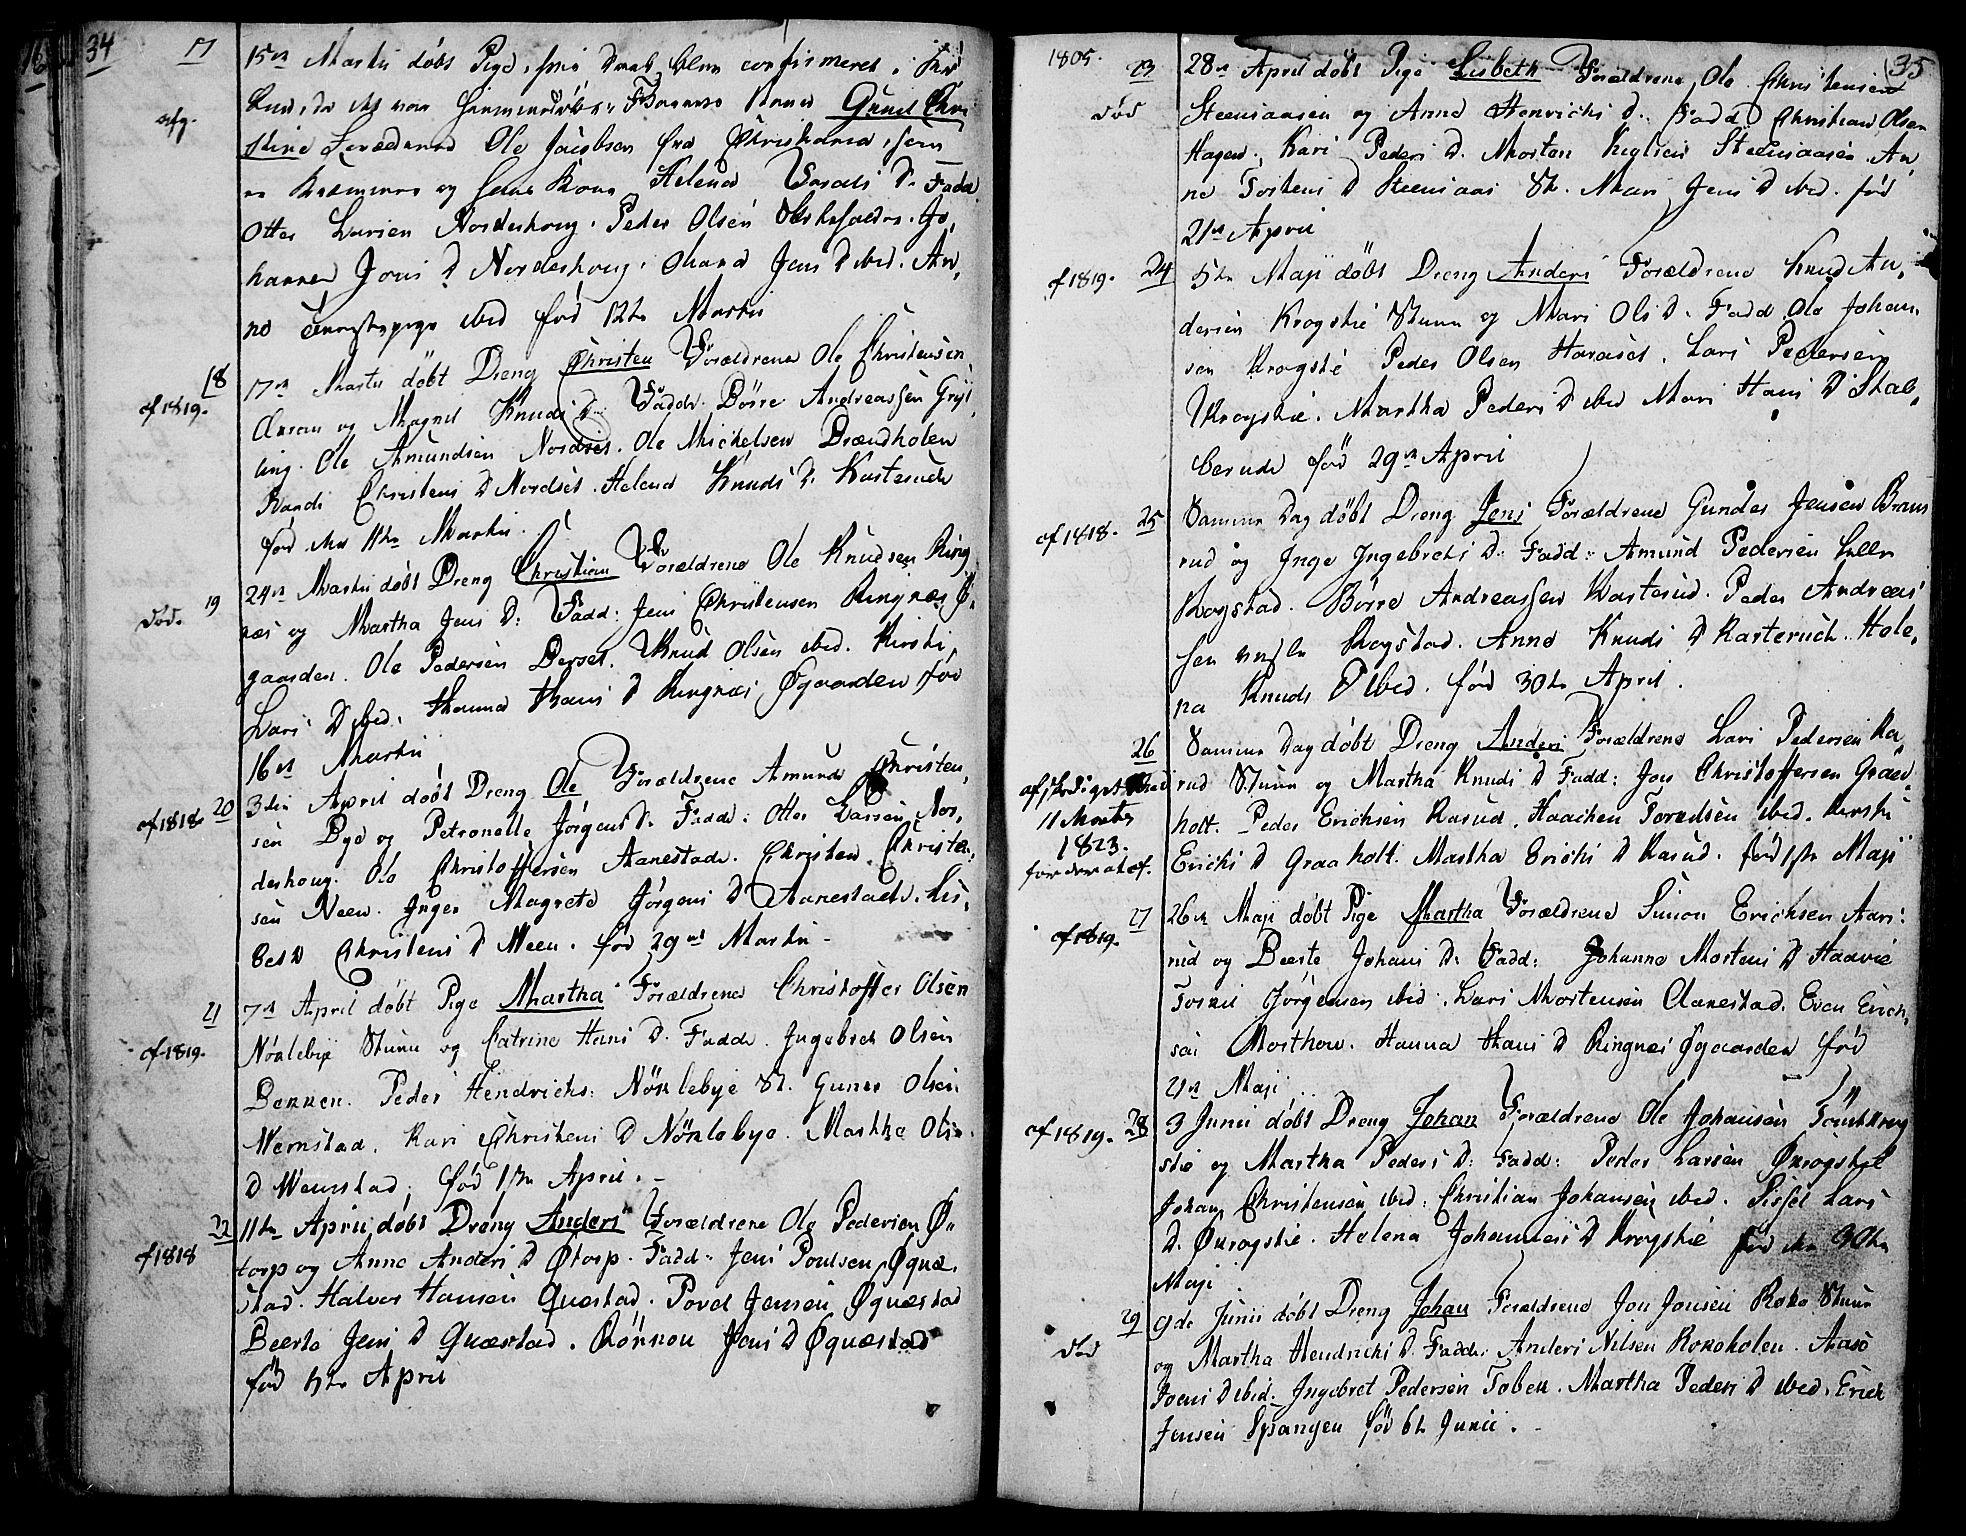 34
17
15de Martii døbt Pige, som dend blev confirmeret i Kir
afg.
Barnets Navn Gunil Chri
stine Forældrene Ole Jacobsen fra Christiania, som
er Kræmmer og hans Kone Helena Fadd.
Otter Larsen Norderhoug. Peder Olsen Jo,
hanne Jons D Norderhoug. Maria Jens D ibid. An,
ne Tienestepige ibid fød 12te Martii
18
af 1819.
17de Martii døbt Dreng Christen Forældrene Ole Christensen
og Magnil Knuds D. Fadd. Børre Andreassen Gryt
ting. Ole Amundsen Nordset. Ole Michelsen Brændholen
Randi Christens D Nordset. Helena Knuds D. Kasterud
fød den 11te Martii.
19
død.
24de Martii døbt Dreng Christian Forældrene Ole Knudsen Ring
næs og Martha Jens D: Fadd: Jens Christensen Ringnæs Ø,
gaarden. Ole Pedersen Berset. Knud Olsen ibid. Kirsti
Lars D ibid. Hanna Hans D Ringnæs Øgaarden fød
16de Martii
20
af 1818.
3die April døbt Dreng Ole Forældrene Amund Christen,
sen Bye og Petronelle Jørgens D. Fadd: Otter Larsen Nor,
derhoug. Ole Christoffersen Aanestad. Christen Christen,
sen Neen. Inger Magrete Jørgens D Aanestad. Lis,
beth Christens D Neen. fød 29de Martii
21
af 1819.
7de April døbt Pige Martha Forældrene Christoffer Olsen
Nøklebye Stuen og Catrine Hans D. Fadd. Ingebret Olsen
Bennen. Peder Hendrichs: Nøklebye St. Guner Olsen
Wernstad. Kari Christens D Nøklebye. Marthe Ols
D Wernstad. fød 1ste April.
22
af 1818
11te April døbt Dreng Anders Forældrene Ole Pedersen Ø,
torp og Anne Anders D Øtorp. Fadd: Jens Poulsen Øquæ,
stad. Halvor Hansen Quæstad. Povel Jensen Øquæstad
Beerte Jens D Quæstad. Rønnou Jens D Øquæstad
fød April
1805.
35
23
død
28de April døbt Pige Lisbeth Forældrene Ole Christensen
Steensaasen og Anne Henrichs D. Fadd Christian Olsen
Hagen. Kari Peders D. Morten Steensaasen. An
ne Torstens D Steensaas St. Mari Jens D ibid. fød
21de April
24
af 1819.
5te Maji døbt Dreng Anders Forældrene Knud An,
dersen Krogstie Stuen og Mari Ols D. Fadd Ole Johan,
sen Krogstie Peder Olsen Haraset. Lars Pedersen
Krogstie. Martha Peders D ibid Mari Hans D Skal,
berud fød 29de April
25
af 1818.
Samme Dag døbt Dreng Jens Forældrene Gunder Jensen Bram
rud og Inge Ingebrets D. Fadd: Amund Pedersen Lille
Rogstad. Børre Andreassen Kasterud. Peder Andreas
sen Rogstad. Anne Knuds D Kasterud. Hele,
na Knuds D ibid. fød 30te April.
26
11 Martii
1823.
Samme Dag døbt Dreng Anders Forældrene Lars Pedersen Ra,
rud Stuen og Martha Knuds D Fadd: Jon Christoffersen Graa
holt. Peder Erichsen Rasud. Haachen Torudsen ibid. Kirsti
Erichs D Graaholt. Martha Erichs D Rasud. fød 1ste Maji
27
af 1819.
26de Maji døbt Pige Martha Forældrene Simon Erichsen Aars,
rud og Beerte Johans D. Fadd: Johanne Mortens D Haavie
Torkil Jørgensen ibid. Lars Mortensen Aanestad. Even Erich,
sen Morthou. Hanna Hans D Ringnæs Øgaarden fød
21de Maji
28
af 1819.
3 Junii døbt Dreng Johan Forældrene Ole Johansen Tomtkrog
stie og Martha Peders D: Fadd: Peder Larsen Økrogstie
Johan Christensen ibid. Christian Johansen ibid. Sissel Lars
D. Økrogstie. Helena Johannes D Krogstie fød den 30te
Maji
29
død
9de Junii døbt Dreng Johan Forældrene Jon Jonsen Roko Stuen
og Martha Hendrichs D. Fadd: Anders Nilsen Rokoholen. Aase
Joens D ibid. Ingebret Pedersen Toben. Martha Peders D ibid. Erich
Jensen Spangen fød 6te Junii.